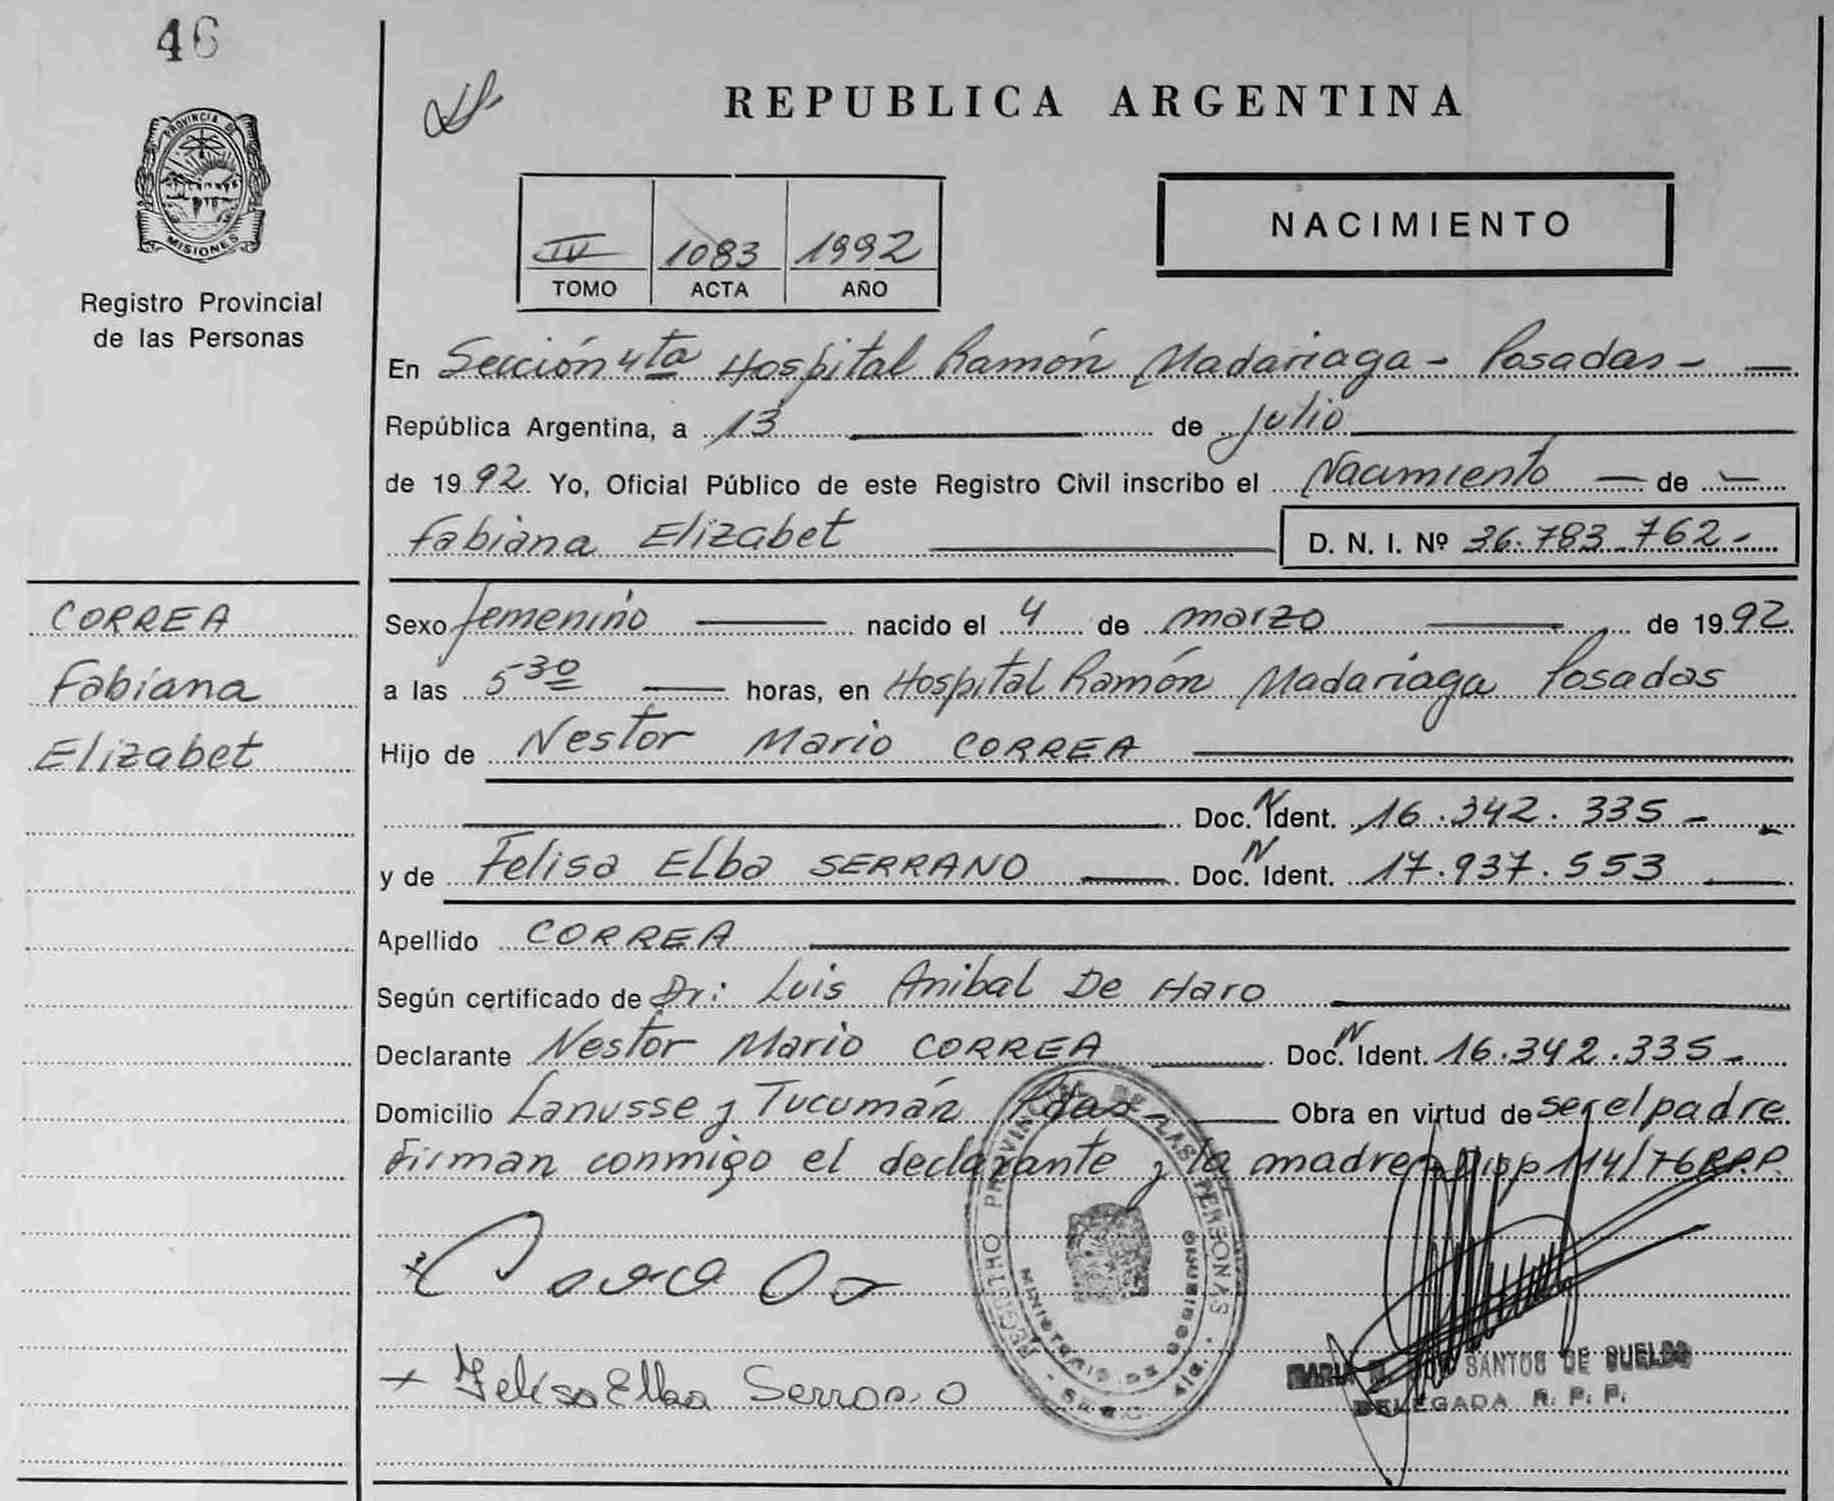 46
PROVINCIA DE
MISIONES
Registro Provincial
de las Personas
REPUBLICA ARGENTINA
IV 1083 1992
TOMO ACTA AÑO
NACIMIENTO
En Sección 4ta Hospital Ramón Madariaga - Posadas -
República Argentina, a 13 de julio
de 1992. Yo, Oficial Público de este Registro Civil inscribo el Nacimiento de
Fabiana Elizabet D. N. I. Nº 36.783.762.-
CORREA
Fabiana
Elizabet
Sexo femenino nacido el 4 de marzo de 1992.
a las 5-30 horas, en Hospital Ramón Madariaga Posadas
Hijo de Nestor Mario CORREA
Doc. N Ident. 16.342.335 -
y de Felisa Elba SERRANO Doc. N Ident. 17.937.553
Apellido CORREA
Según certificado de Dr: Luis Anibal De Haro
Declarante Nestor Mario CORREA Doc. N Ident. 16.342.335 -
Domicilio Lanusse y Tucumán Pdas- Obra en virtud de ser el padre
Firman conmigo el declarante y la madre Disp 114/76 R.P.P.
REGISTRO PROVINCIAL DE LAS PERSONAS
MINISTERIO DE GOBIERNO
Felisa Elba Serrano
MARIA SANTOS DE BUELDO
DELEGADA R. P. P.